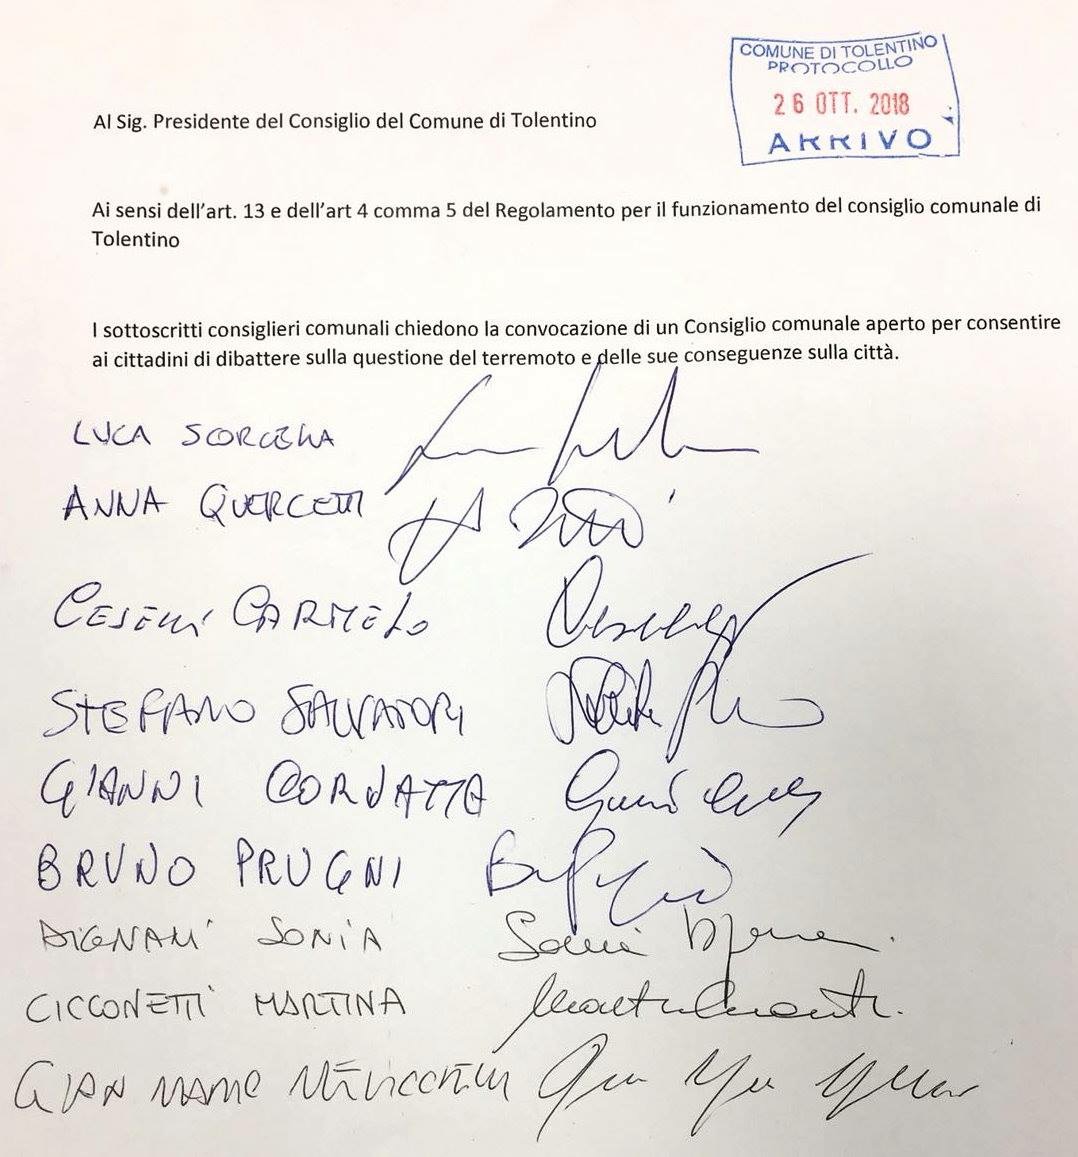 COMUNE DI TOLENTINO
PROTOCOLLO
26 OTT. 2018
ARRIVO
Al Sig. Presidente del Consiglio del Comune di Tolentino
Ai sensi dell'art. 13 e dell'art 4 comma 5 del Regolamento per il funzionamento del consiglio comunale di
Tolentino
I sottoscritti consiglieri comunali chiedono la convocazione di un Consiglio comunale aperto per consentire
ai cittadini di dibattere sulla questione del terremoto e delle sue conseguenze sulla città.
LUCA SCORCELLA
ANNA QUERCETTI
CESELLI CARMELO
STEFANO SALVATORI
GIANNI CORVATTA
BRUNO PRUGNI
DIGNANI SONIA
CICCONETTI MARTINA
GIAN MARIO